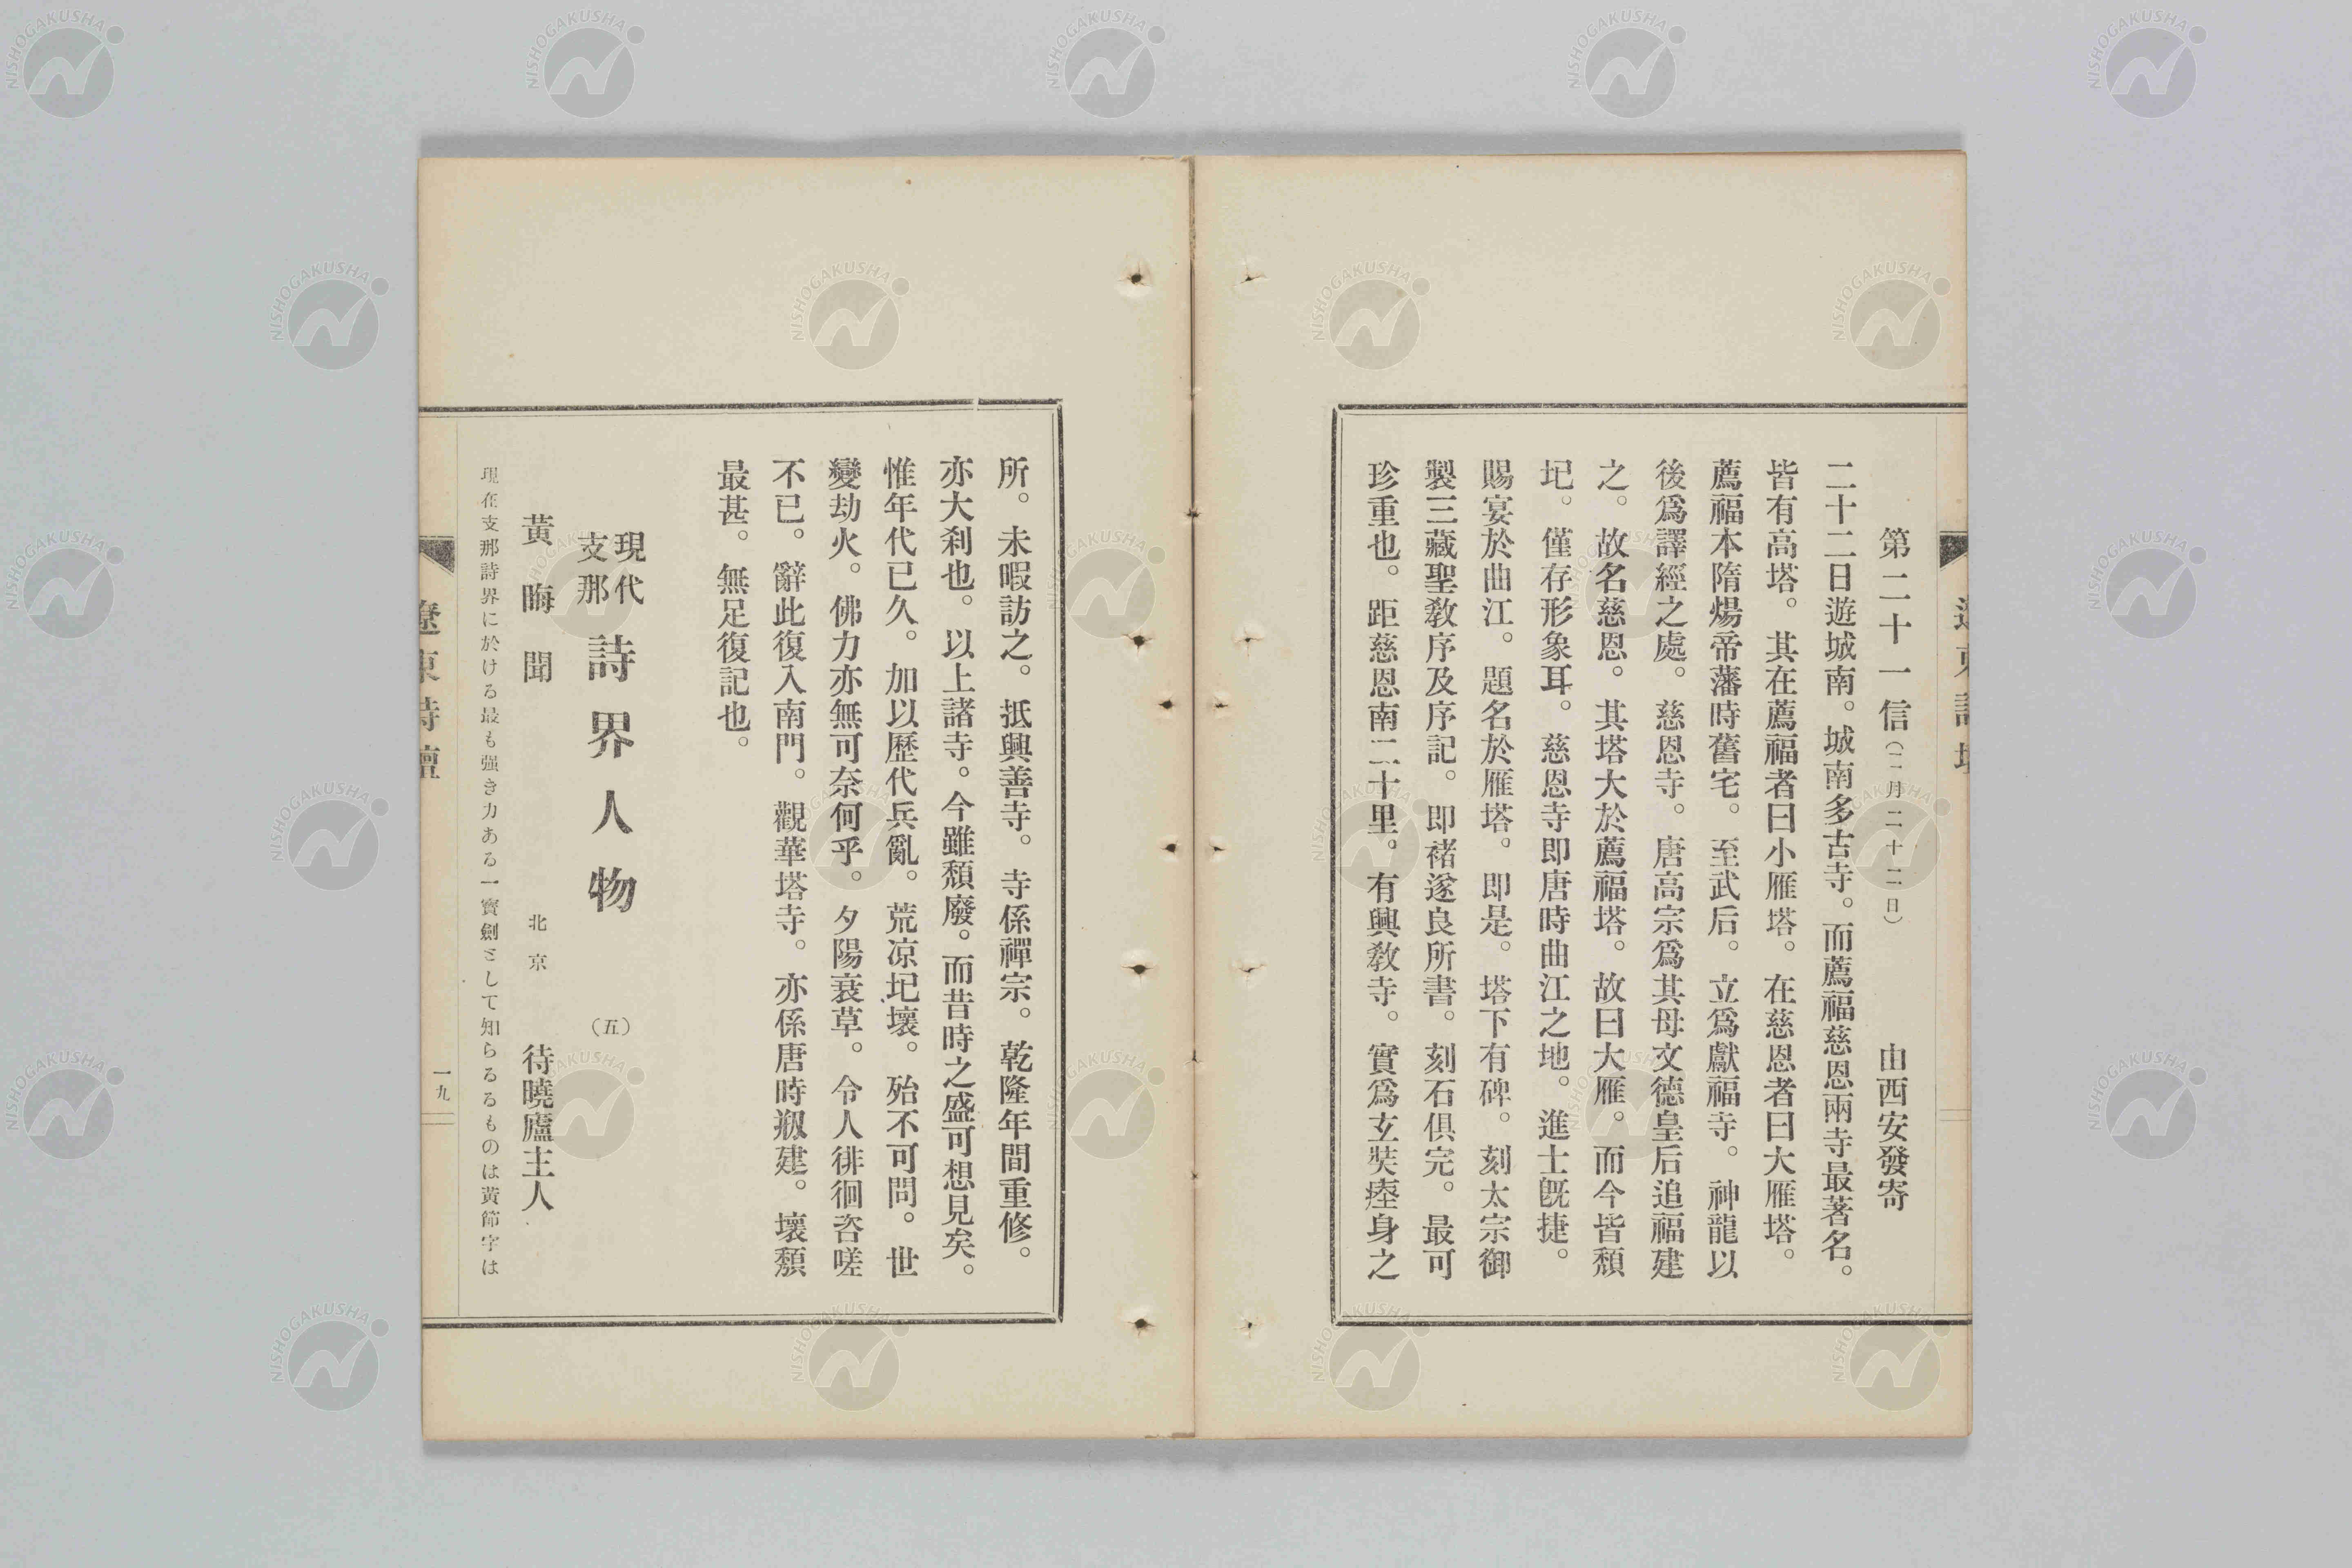 第二十一信(二月二十二日) 由西安發寄
二十二日遊城南。城南多古寺。而薦福慈恩兩寺最著名。
皆有高塔。其在薦福者曰小雁塔。在慈恩者曰大雁塔。
薦福本隋煬帝藩時舊宅。至武后。立爲獻福寺。神龍以
後爲譯經之處。慈恩寺。唐高宗爲其母文德皇后追福建
之。故名慈恩。其塔大於薦福塔。故曰大雁。而今皆頽
圮。僅存形象耳。慈恩寺即唐時曲江之地。進士旣捷。
賜宴於曲江。題名於雁塔。即是。塔下有碑。刻太宗御
製三藏聖敎序及序記。即褚遂良所書。刻石俱完。最可
珍重也。距慈恩南二十里。有興敎寺。實爲玄奘瘞身之
所。未暇訪之。抵興善寺。寺係禪宗。乾隆年間重修。
亦大刹也。以上諸寺。今雖頽廢。而昔時之盛可想見矣。
惟年代已久。加以歷代兵亂。荒凉圮壞。殆不可問。世
變劫火。佛力亦無可奈何乎。夕陽衰草。令人徘徊咨嗟
不已。辭此復入南門。觀華塔寺。亦係唐時剏建。壞頽
最甚。無足復記也。
現代支那 詩界人物 (五)
黃晦聞 北京 待曉廬主人
現在支那詩界に於ける最も强き力ある一寶劍として知らるるものは黃節字は
遼東詩壇
一九
NISHOGAKUSHA